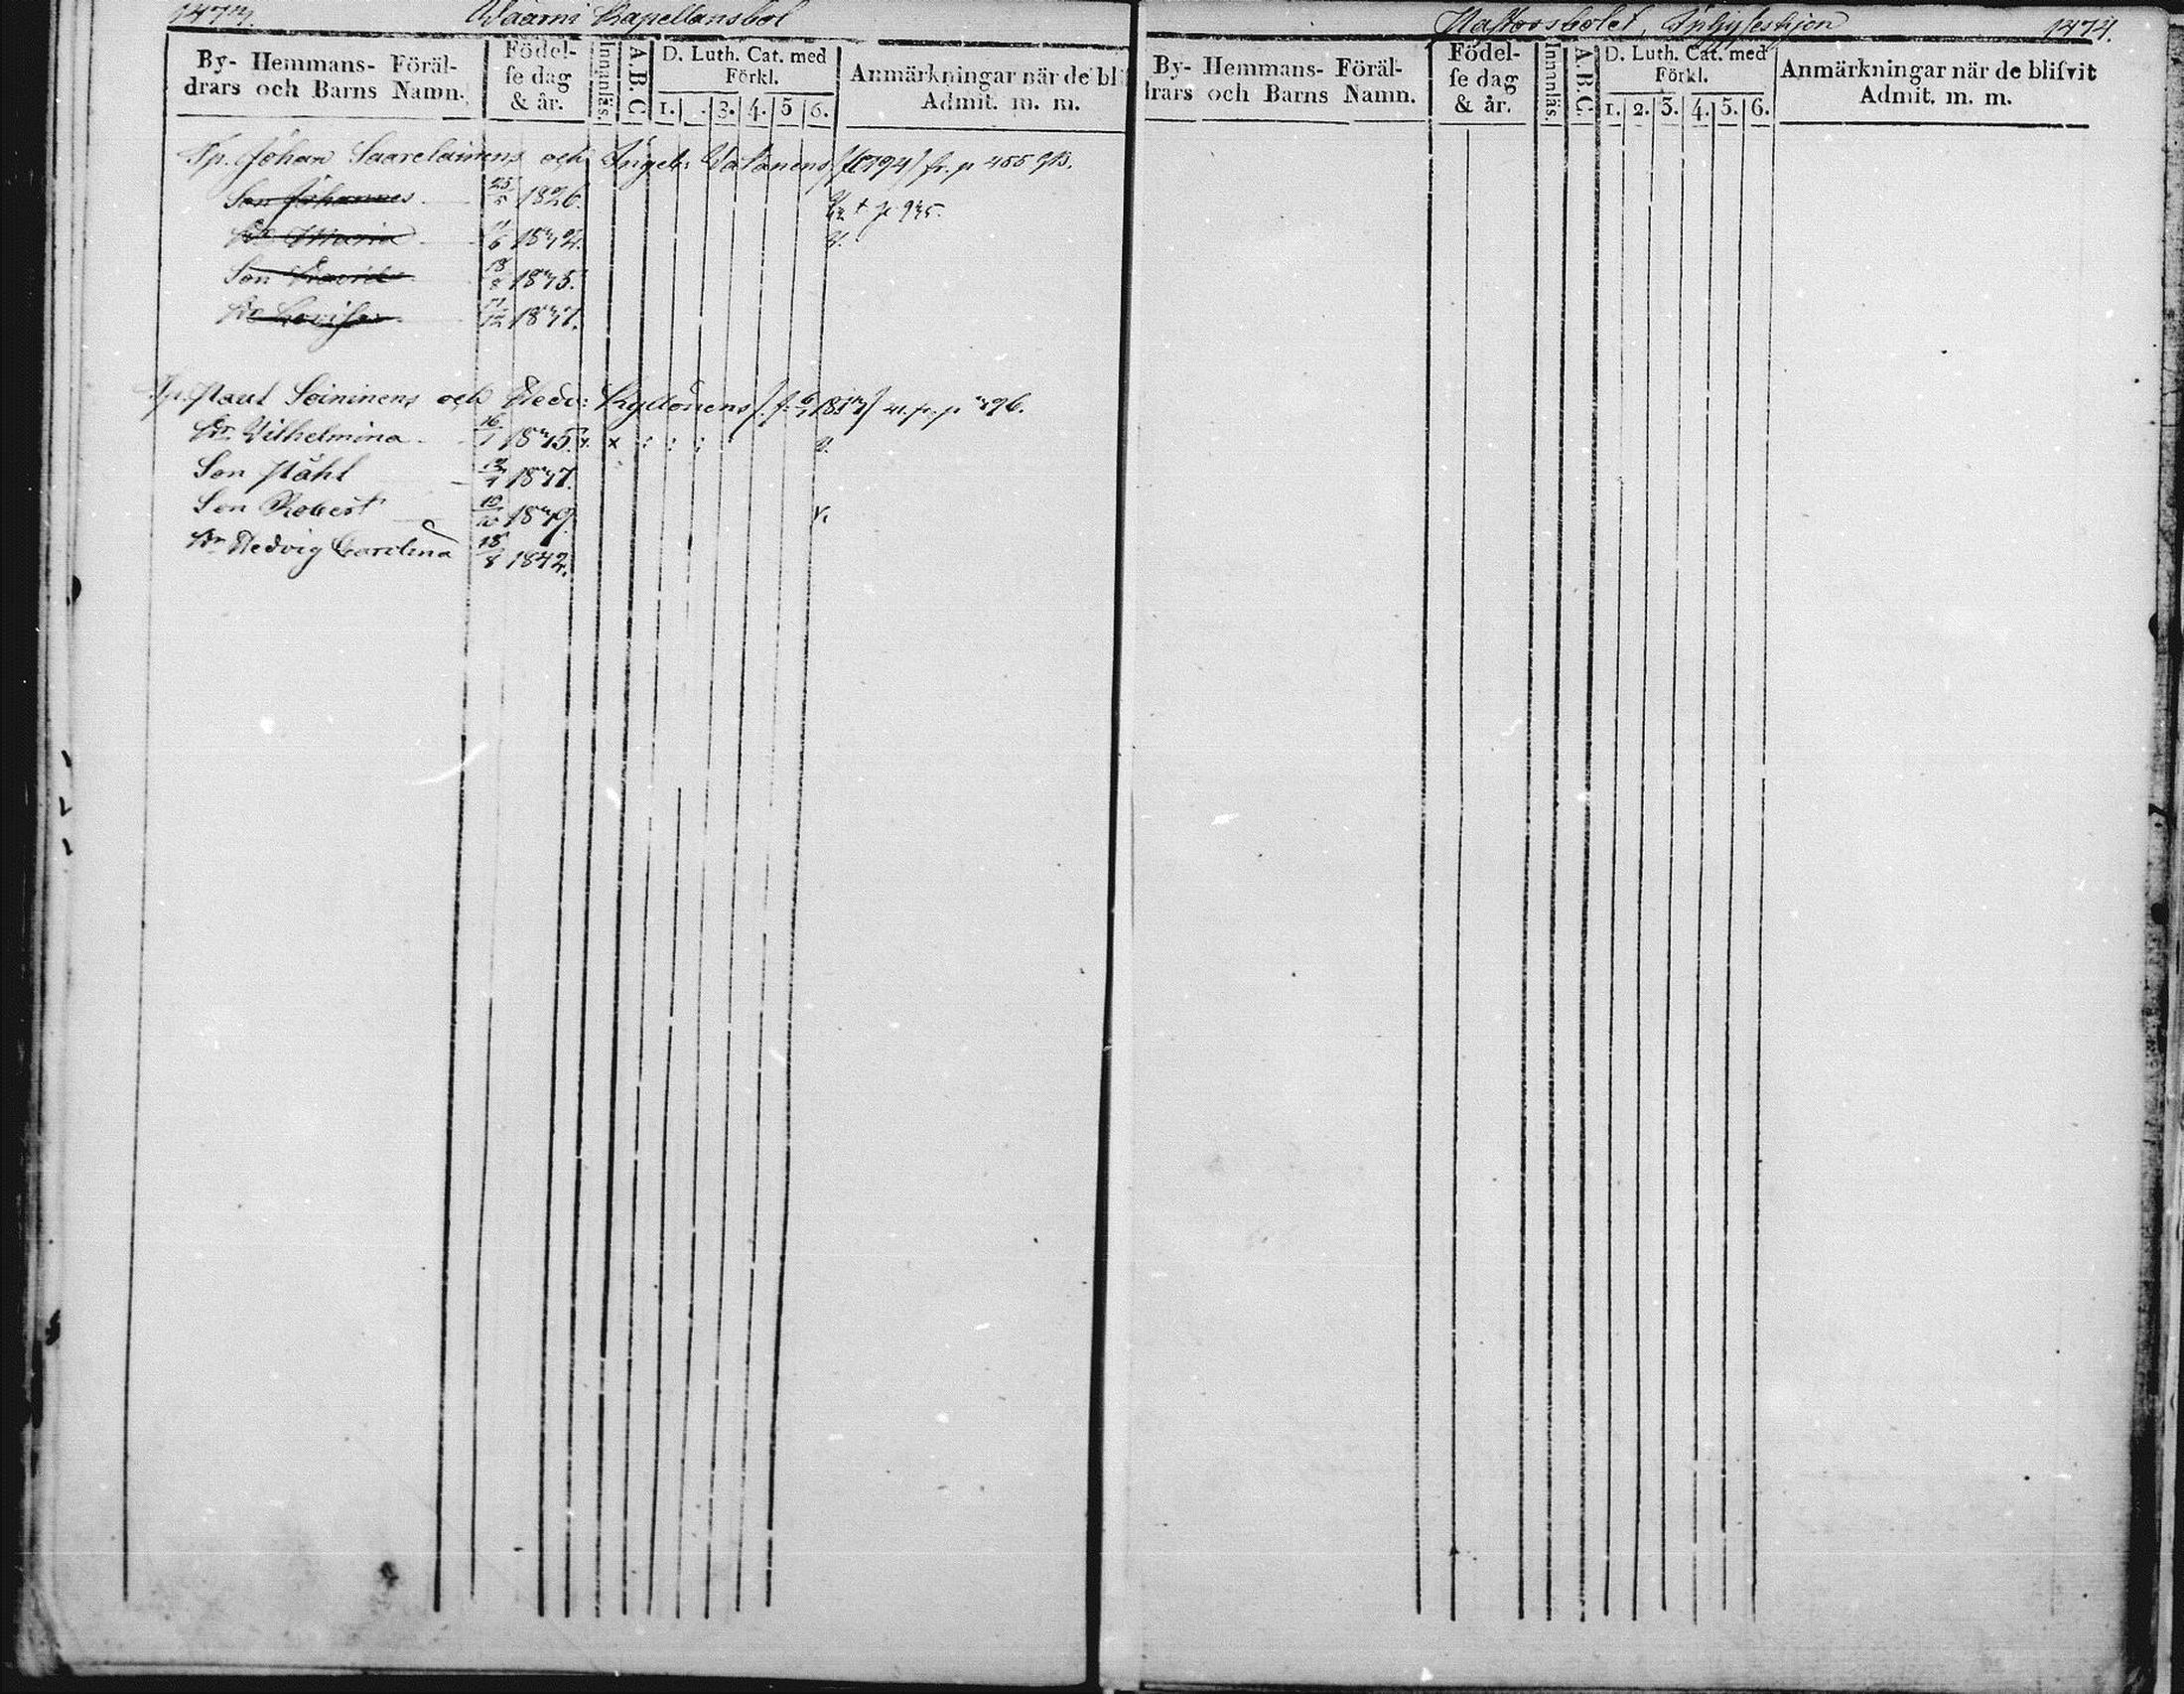 1473.
Waarni Capellansbol
By- Hemmans- Föräl-
drars och Barns Namn.
Födel-
se dag
& år.
Innanläs.
A.B.C
D. Luth. Cat. med
Förkl.
1. . 3. 4. 5 6.
Anmärkningar när de bli
Admit. m. m.
Sp. Johan Saarelainens och Ingeb: Vatanens fr. p 455
Son Johannes 25/5 1826. + p 935.
Dr Maria 1832.
Son David 18/8 1835.
Dr Lovisa 1837.
Sp. Paul Soininens och Hedv: Kyllönens
Dr Vilhelmina 16/1 1835. x
Son Påhl 1837.
Son Robert 10/10 1839.
Dr Hedvig Carolina 18/8 1842.
Pastorsbolet, Inhyseshjon
1474.
By- Hemmans- Föräl-
drars och Barns Namn.
Födel-
se dag
& år.
Innanläs.
A.B.C.
D. Luth. Cat. med
Förkl.
1. 2. 3. 4. 5. 6.
Anmärkningar när de blifvit
Admit. m. m.